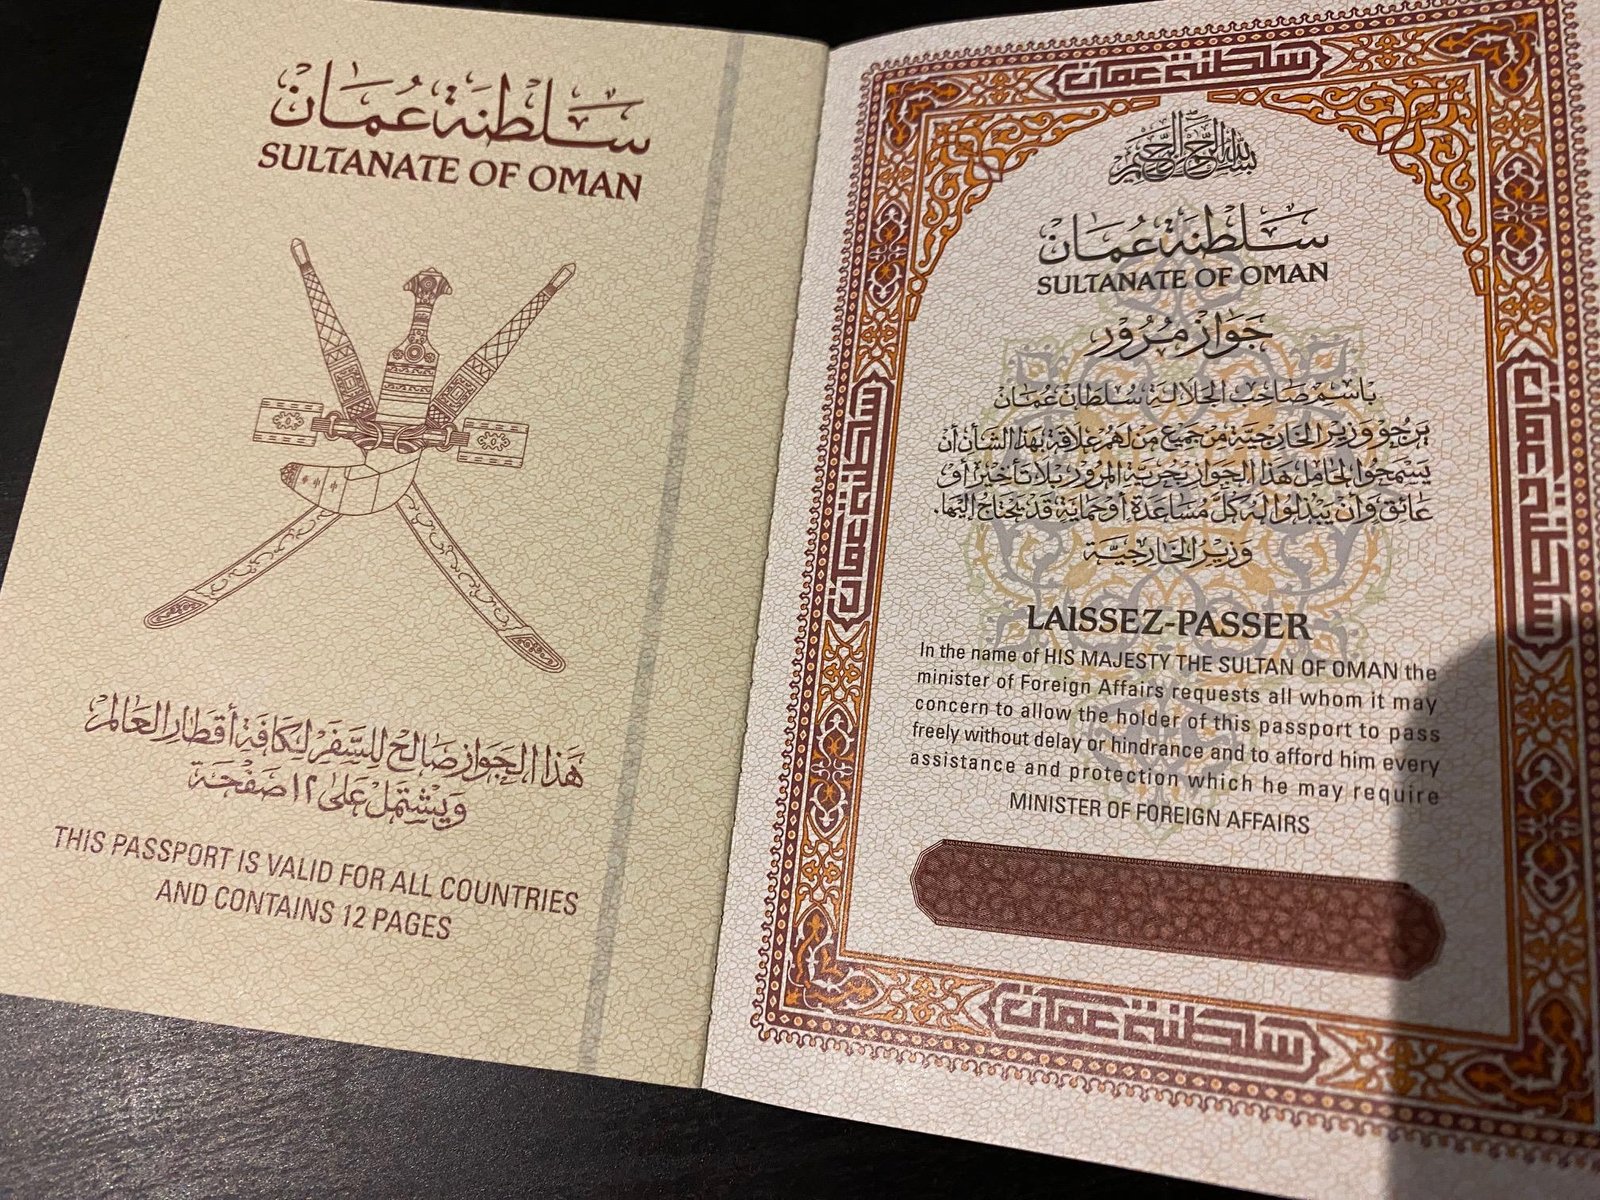 سلطنة عُمان
SULTANATE OF OMAN
هذا الجواز صالح للسفر لكافة أقطار العالم
ويشتمل على ١٢ صفحة
THIS PASSPORT IS VALID FOR ALL COUNTRIES
AND CONTAINS 12 PAGES
سلطنة عمان
بسم الله الرحمن الرحيم
سلطنة عُمان
SULTANATE OF OMAN
جواز مرور
باسم صاحب الجلالة سلطان عمان
يرجو وزير الخارجية من جميع من لهم علاقة بهذا الشأن أن
يسمحوا لحامل هذا الجواز بحرية المرور بلا تأخير أو
عائق وأن يبذلوا له كل مساعدة أو حماية قد يحتاج إليها.
وزير الخارجية
LAISSEZ-PASSER
In the name of HIS MAJESTY THE SULTAN OF OMAN the
minister of Foreign Affairs requests all whom it may
concern to allow the holder of this passport to pass
freely without delay or hindrance and to afford him every
assistance and protection which he may require
MINISTER OF FOREIGN AFFAIRS
سلطنة عمان
سلطنة عمان
سلطنة عمان